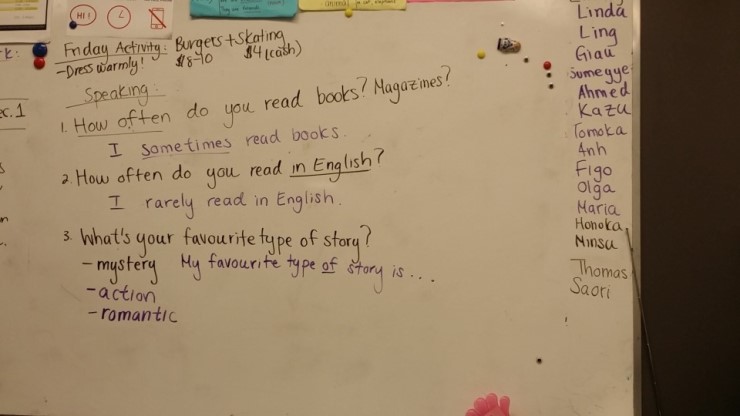 HI!
Friday Activity: Burgers + Skating
- Dress warmly! $8-10 $4 (cash)
Speaking:
1. How often do you read books? Magazines?
I sometimes read books.
2. How often do you read in English?
I rarely read in English.
3. What's your favourite type of story?
- mystery My favourite type of story is...
- action
- romantic
Linda
Ling
Giau
Sumegye
Ahmed
Kazu
Tomoka
Anh
Figo
Olga
Maria
Honoka
Minsu
Thomas
Saori